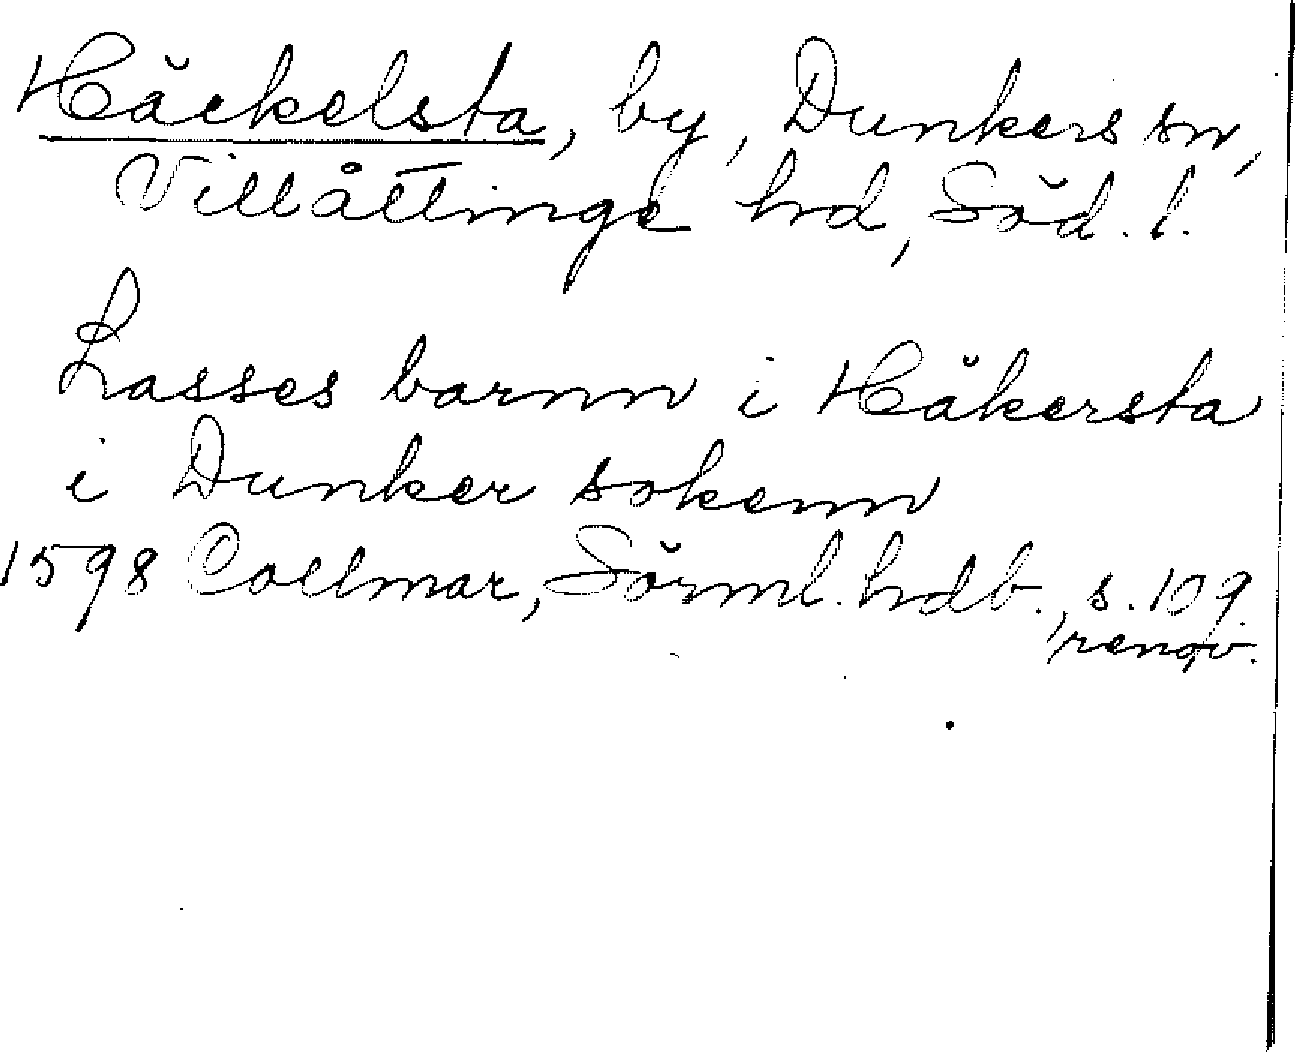 Häckelsta, by, Dunkers sn,
Villåttinge hd, Söd. l.
Lasses barnn i Häkersta
i Dunker sokenn
1598 Collmar, Sörml. hdb., s. 109
renov.